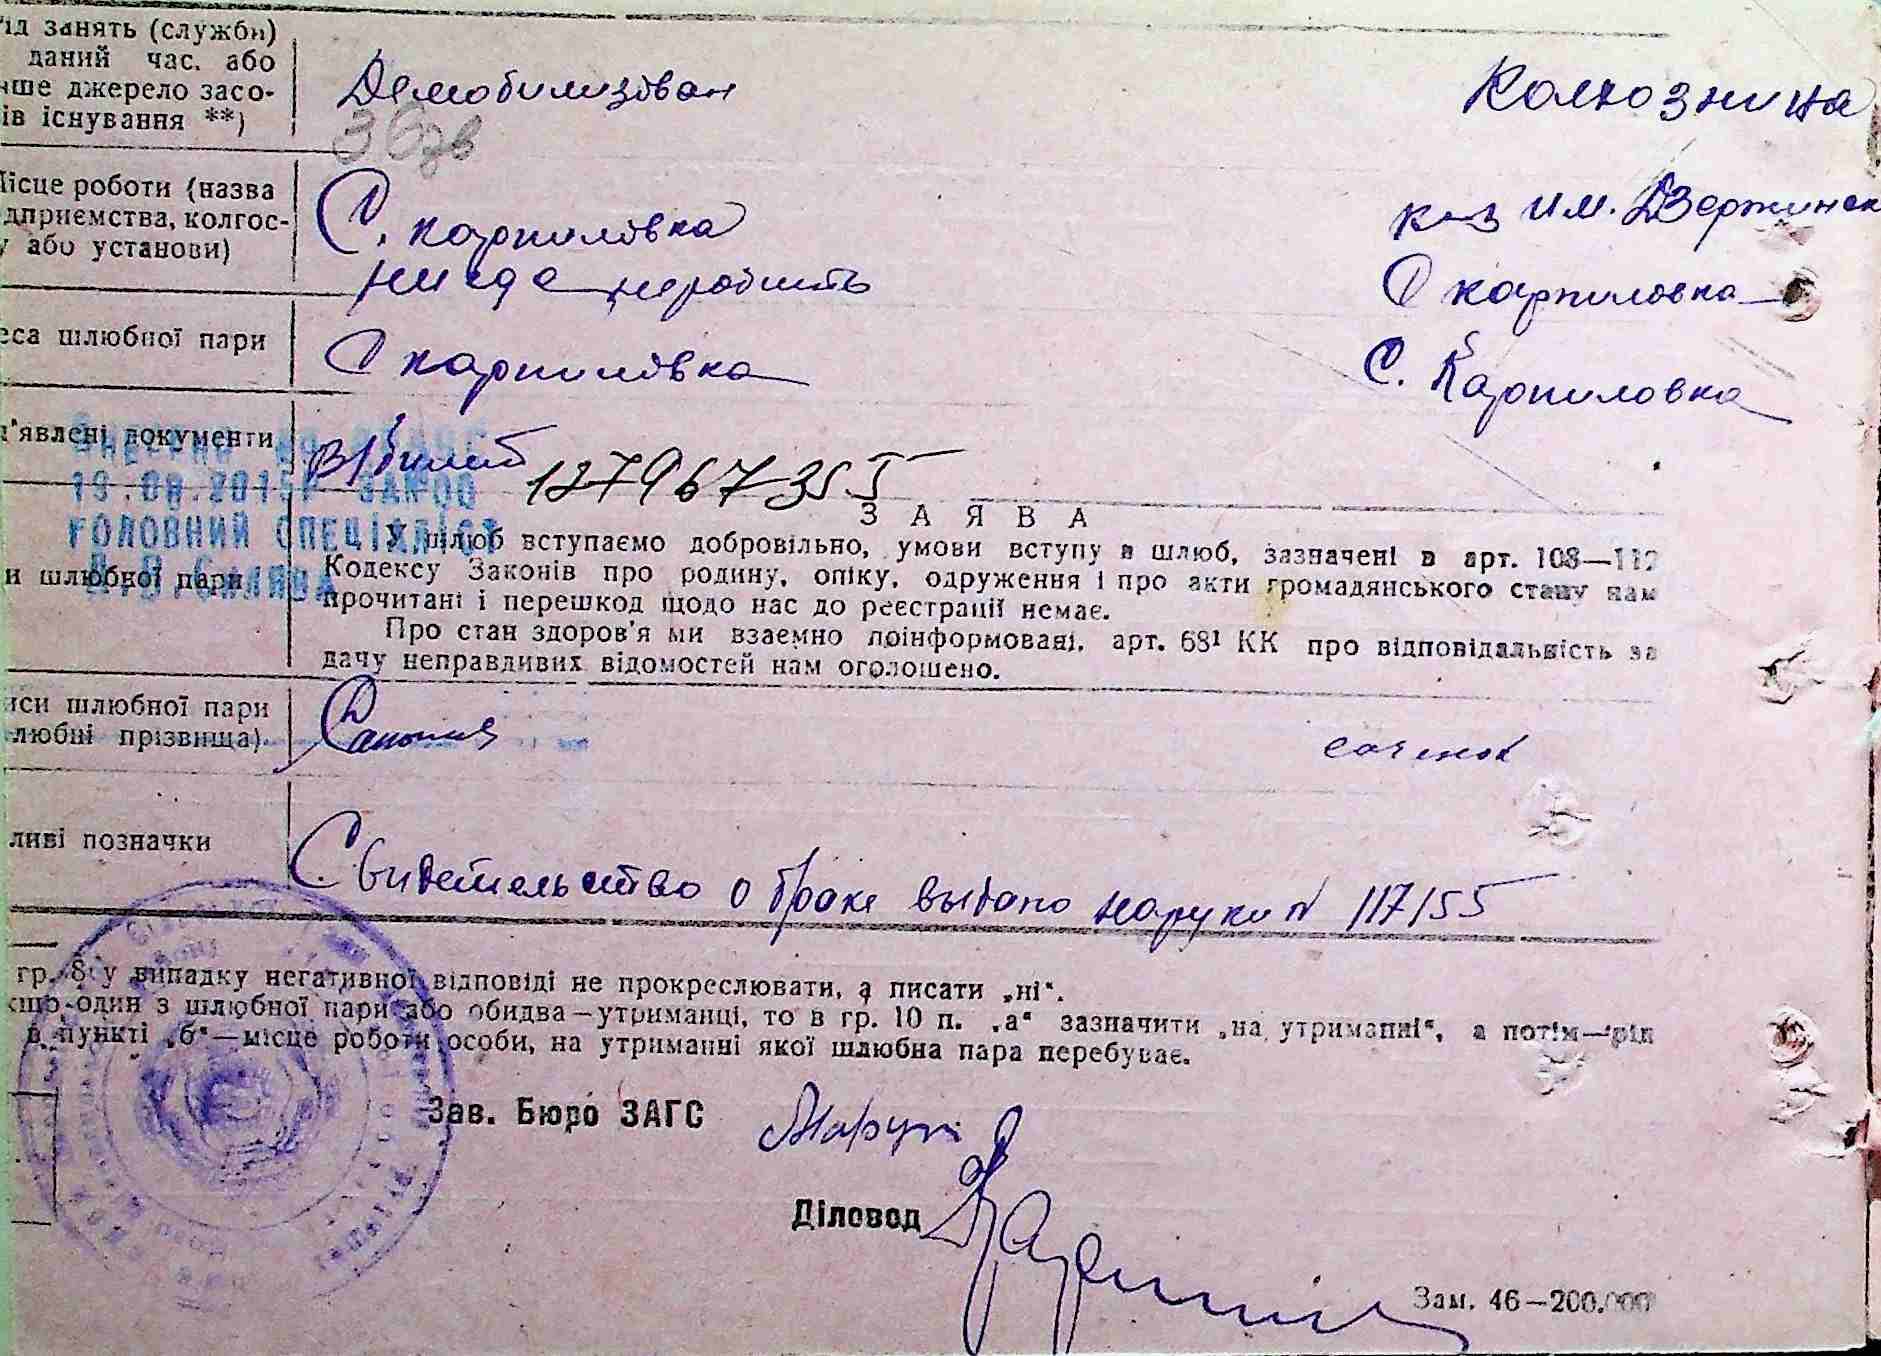 ід занять (служби)
даний час. або
нше джерело засо-
ів існування **)
Демобилизован
Колхозница
Місце роботи (назва
дприємства, колгос-
у або установи)
С. карпиловка
нигде неробить
к-з им. Дзержинск
С карпиловка
еса шлюбної пари
С карпиловка
С. Карпиловка
'явлені документи
в/билет 127967355
19.08.2015р
ГОЛОВНИЙ СПЕЦІАЛІСТ
ЗАЯВА
и шлюбної пари
У шлюб вступаємо добровільно, умови вступу в шлюб, зазначені в арт. 108—112
Кодексу Законів про родину, опіку, одруження і про акти громадянського стану нам
прочитані і перешкод щодо нас до реєстрації немає.
Про стан здоров'я ми взаємно поінформовані, арт. 68¹ КК про відповідальність за
дачу неправдивих відомостей нам оголошено.
иси шлюбної пари
любні прізвища)
ливі позначки
Свидетельство о браке выдано на руки № 117155
гр. 8 у випадку негативної відповіді не прокреслювати, а писати „ні“.
кщо один з шлюбної пари або обидва—утриманці, то в гр. 10 п. „а“ зазначити „на утриманні“, а потім—рід
в пункті „б“—місце роботи особи, на утриманні якої шлюбна пара перебуває.
Зав. Бюро ЗАГС
Діловод
Зам. 46—200.000